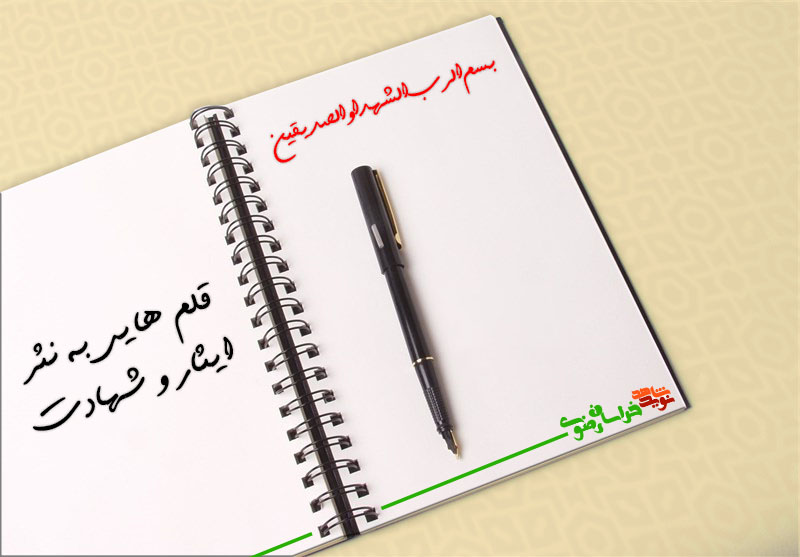 بسم الرب الشهدا و الصدیقین
قلم هایی به نثر
ایثار و شهادت
نوید شاهد
خراسان رضوی